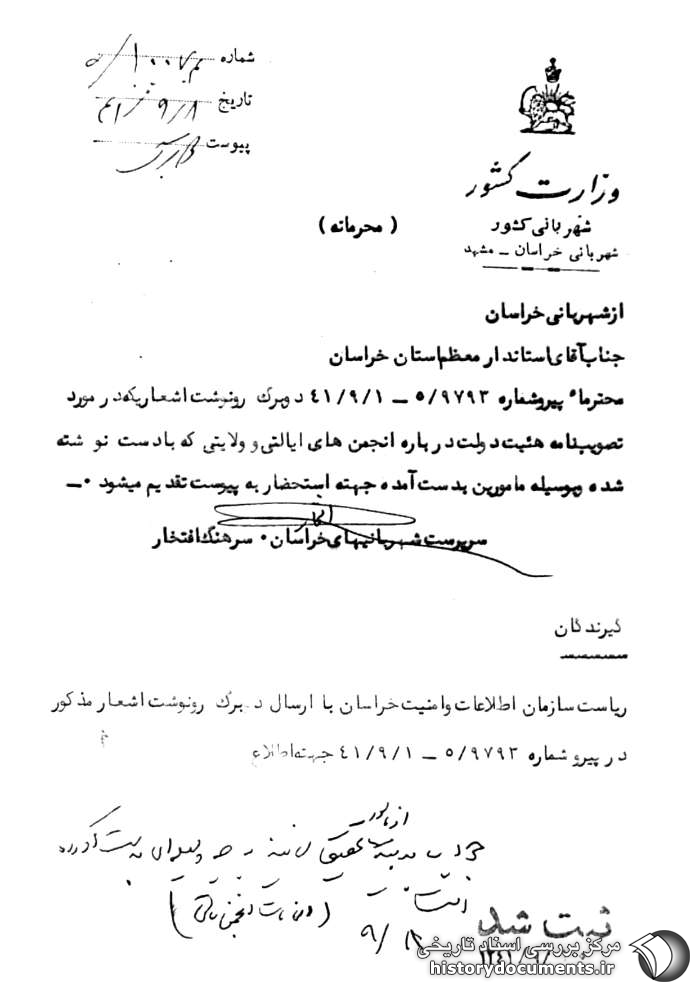 شماره
تاریخ ۹/۸
پیوست
وزارت کشور
شهربانی کشور
شهربانی خراسان ـ مشهد
( محرمانه )
از شهربانی خراسان
جناب آقای استاندار معظم استان خراسان
محترماً پیرو شماره ۵/۹۷۹۳ ـ ۴۱/۹/۱ دوبرگ رونوشت اشعاریکه در مورد
تصویبنامه هئیت دولت درباره انجمن های ایالتی و ولایتی که بادست نوشته
شده وبوسیله مامورین بدست آمده جهته استحضار به پیوست تقدیم میشود ۰ـ
سرپرست شهربانیهای خراسان ۰ سرهنگ افتخار
گیرندگان
ریاست سازمان اطلاعات وامنیت خراسان با ارسال دوبرگ رونوشت اشعار مذکور
در پیرو شماره ۵/۹۷۹۳ ـ ۴۱/۹/۱ جهته اطلاع
ثبت شد
مرکز بررسی اسناد تاریخی
historydocuments.ir